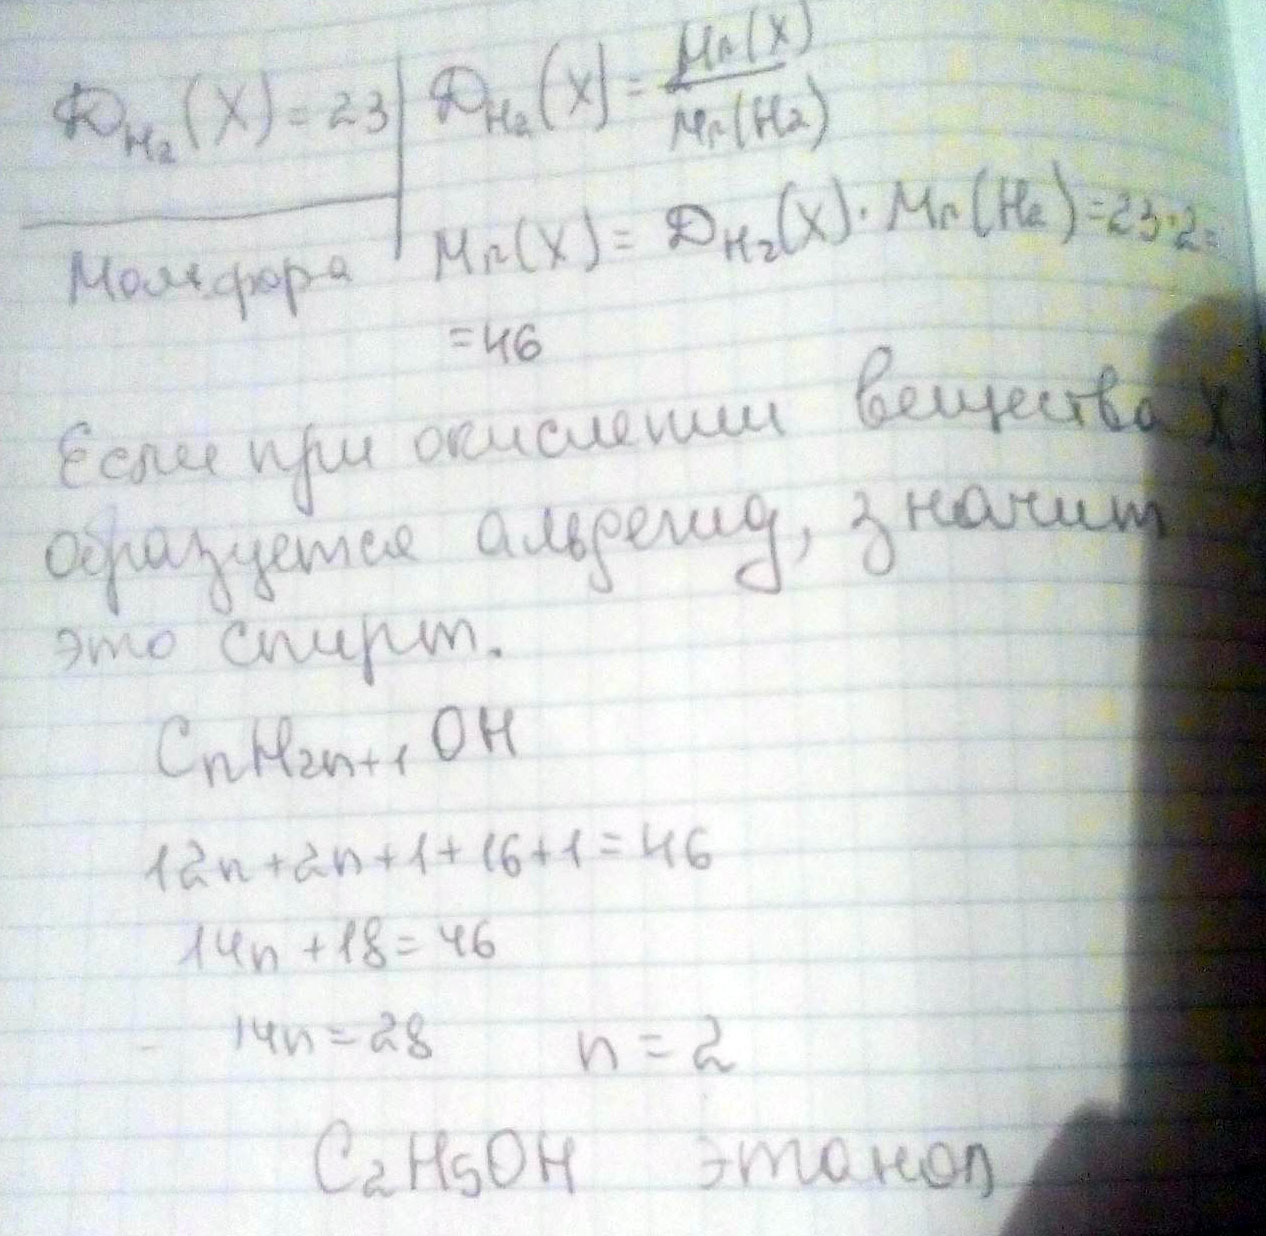 DH2(X) = 23
Мол. фор-а
DH2(X) = Mr(X) / Mr(H2)
Mr(X) = DH2(X) · Mr(H2) = 23·2 =
= 46
Если при окислении вещества X
образуется альдегид, значит
это спирт.
CnH2n+1OH
12n + 2n + 1 + 16 + 1 = 46
14n + 18 = 46
14n = 28 n = 2
C2H5OH этанол